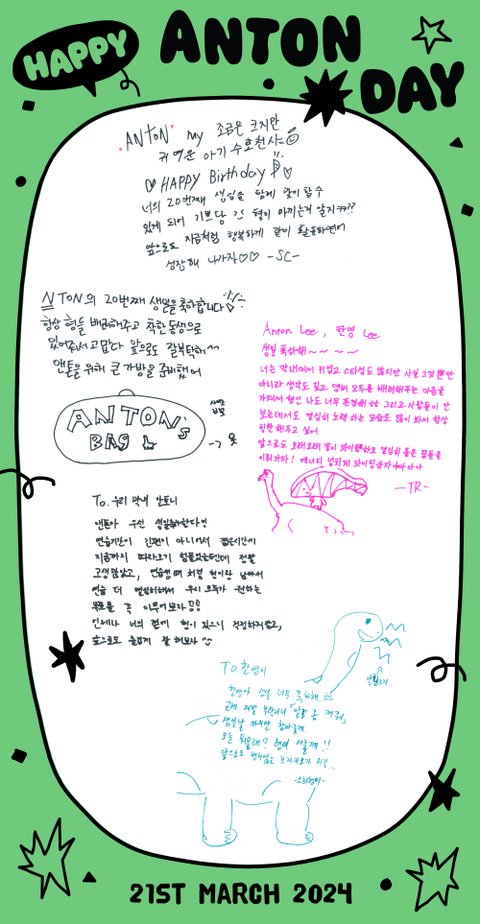 HAPPY ANTON DAY
ANTON my 조금은 크지만
귀여운 아기 수호천사
HAPPY Birthday
너의 20번째 생일을 함께 같이 할 수
있게 되어 기쁘당 형이 아끼는거 알지??
앞으로도 지금처럼 행복하게 같이 활동하면서
성장해 나가자♡♡ -SC-
NTON의 20번째 생일을 축하합니다
항상 형들 배려해주고 착한 동생으로
있어주서 고맙다 앞으로도 잘부탁해~
앤톤을 위해 큰 가방을 준비했어
ANTON's
BAG
생일
선물
Anton Lee, 찬영 Lee
생일 축하해~ ~ ~ ~
너는 막내여서 귀엽고 스타성도 많지만 사실 그것 뿐만
아니라 생각도 깊고 멤버 모두를 배려해주는 마음을
가져서 형인 나도 너무 존경해 ㅎㅎ 그리고 사람들이 안
보는데서도 열심히 노력 하는 모습도 많이 봐서 항상
칭찬해주고 싶어
앞으로도 오래오래 같이 파이팅하고 열심히 좋은 꿈들을
이뤄가자! 에너지 넘치게 파이팅하자 아아아
-TR-
To. 우리 막내 안토니
앤톤아 우선 생일축하한다잉
연습기간이 긴편이 아니어서 짧은시간에
지금까지 따라오기 힘들었을텐데 정말
고생 많았고, 연습생때 처럼 형이랑 남아서
연습 더 열심히해서 우리 모두가 원하는
목표를 꼭 이루어보자!!
언제나 너의 곁에 형이 있으니 걱정하지말고,
앞으로도 즐겁게 잘 해보자
To. 찬영이
찬영아 생일 너무 축하해
근데 제발 부탁이니
생일날 까지만 참아줄게
오늘 뭐먹을래? 형이 사줄게!!
21ST MARCH 2024